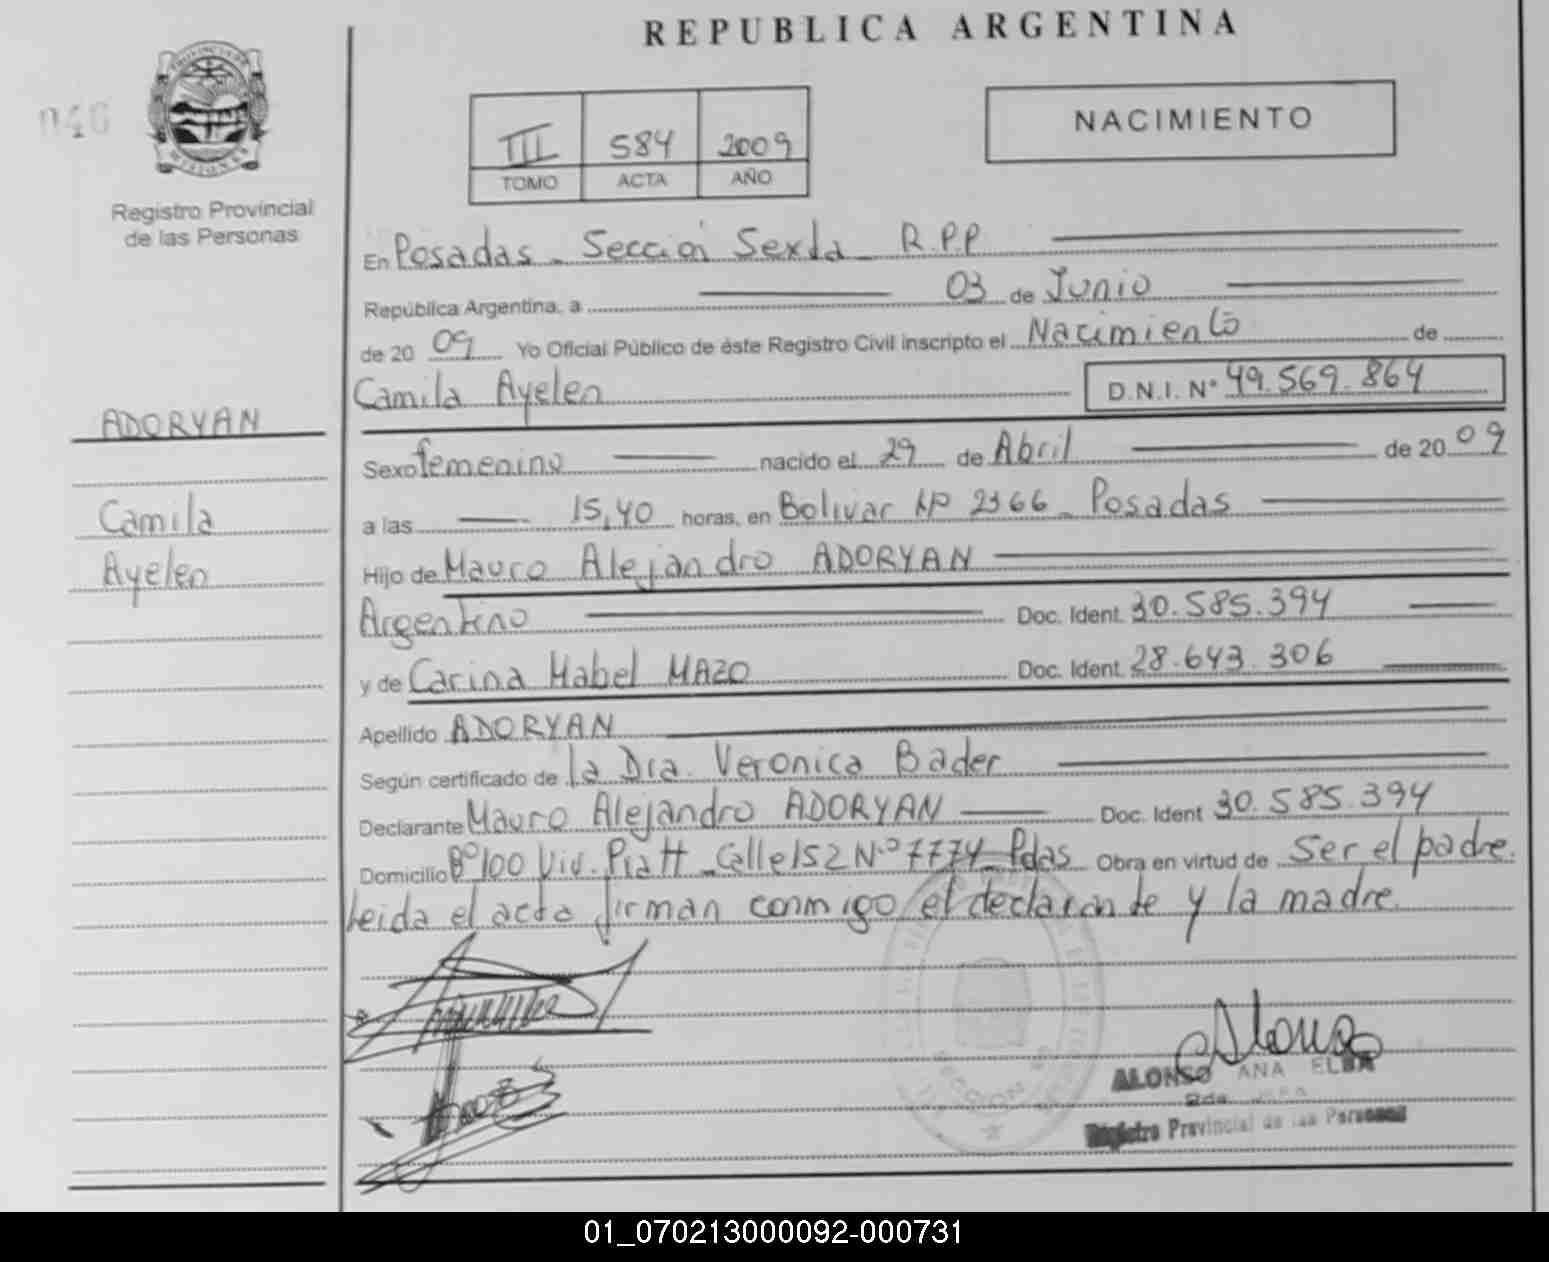 REPUBLICA ARGENTINA
046
PROVINCIA DE
MISIONES
Registro Provincial
de las Personas
III 584 2009
TOMO ACTA AÑO
NACIMIENTO
En Posadas - Sección Sexta - R.P.P
República Argentina, a 03 de Junio
de 20 09 Yo Oficial Público de éste Registro Civil inscripto el Nacimiento de
Camila Ayelen D.N.I. Nº 49.569.864
ADORYAN
Camila
Ayelen
Sexo femenino nacido el 29 de Abril de 20 09
a las 15,40 horas, en Bolivar Nº 2366 - Posadas
Hijo de Mauro Alejandro ADORYAN
Argentino Doc. Ident. 30.585.394
y de Carina Mabel MAZO Doc. Ident. 28.643.306
Apellido ADORYAN
Según certificado de la Dra. Veronica Bader
Declarante Mauro Alejandro ADORYAN Doc. Ident 30.585.394
Domicilio Bº 100 Viv. Piatt - Calle 152 N.º 7774 - Pdas Obra en virtud de Ser el padre.
Leida el acta firman conmigo el declarante y la madre.
Alonso
ALONSO ANA ELBA
Registro Provincial de las Personas
SECCION
01_070213000092-000731